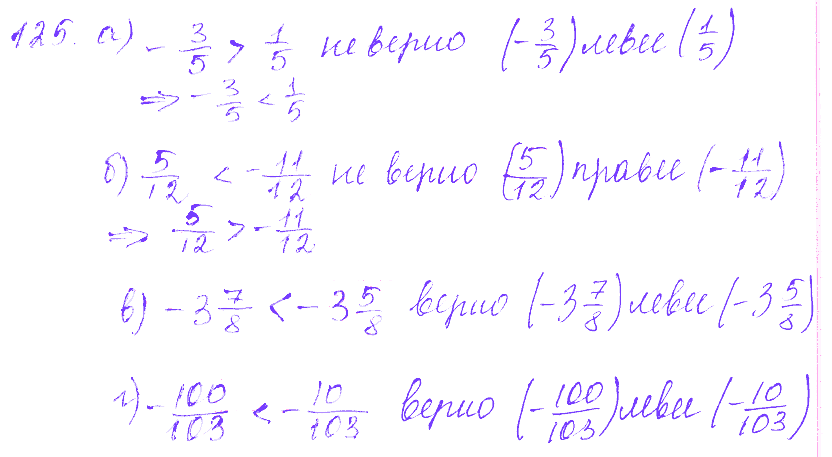 125. а) -3/5 > 1/5 не верно (-3/5) левее (1/5)
⇒ -3/5 < 1/5
б) 5/12 < -11/12 не верно (5/12) правее (-11/12)
⇒ 5/12 > -11/12
в) -3 7/8 < -3 5/8 верно (-3 7/8) левее (-3 5/8)
г) -100/103 < -10/103 верно (-100/103) левее (-10/103)